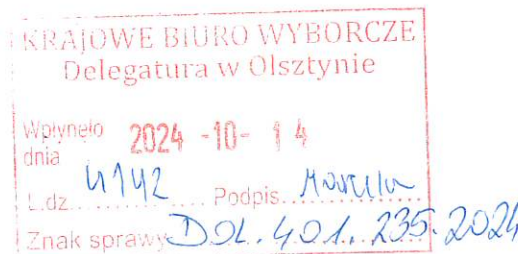 KRAJOWE BIURO WYBORCZE
Delegatura w Olsztynie
Wpłynęło
dnia 2024 -10- 14
L.dz. 4142 Podpis
Znak sprawy DOL.401.235.2024